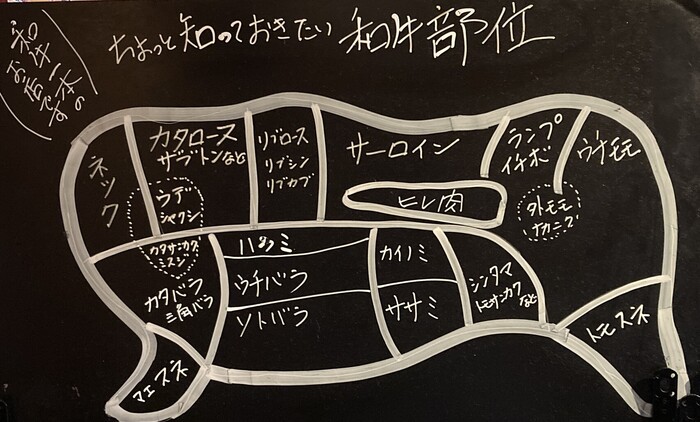 ちょっと知っておきたい 和牛部位
和牛一本の
お店です
ネック
カタロース
ザブトンなど
リブロース
リブシン
リブカブ
サーロイン
ヒレ肉
ランプ
イチボ
ウチモモ
ウデ
シャクシ
カタサンカク
ミスジ
カタバラ
三角バラ
ハラミ
ウチバラ
ソトバラ
カイノミ
ササミ
シンタマ
トモサンカク
など
外モモ
ナカニク
マエスネ
トモスネ